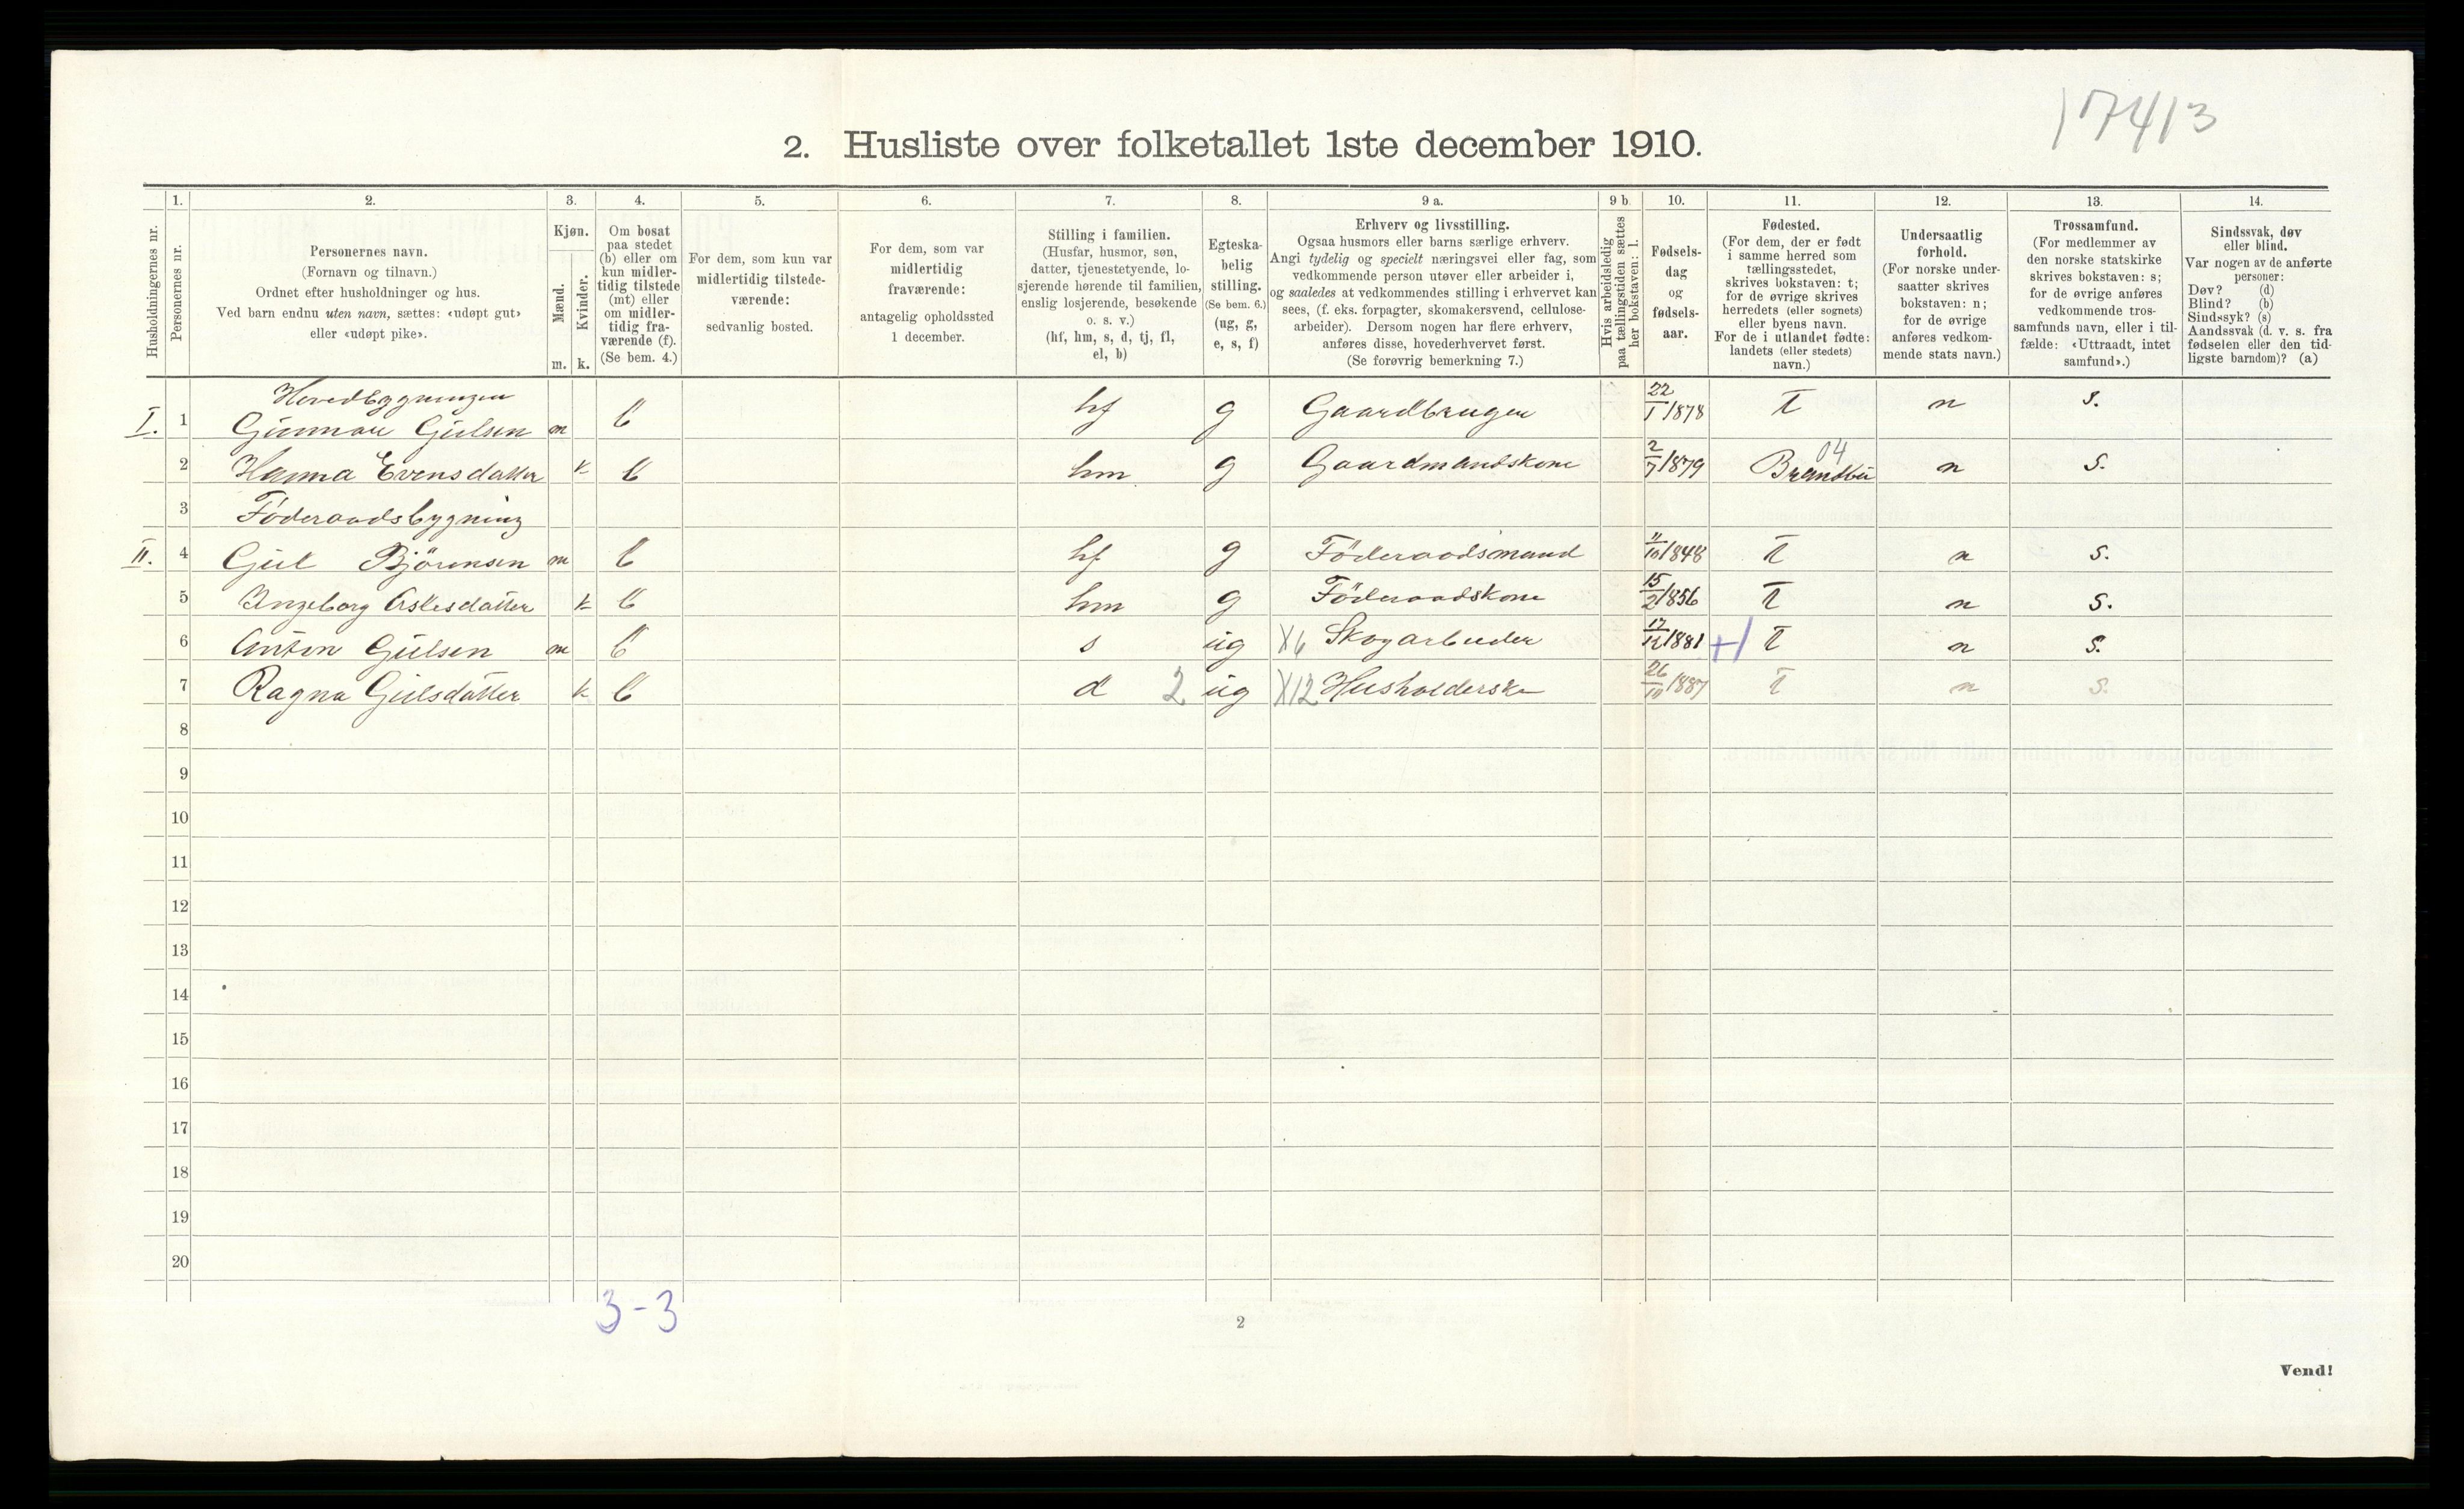 17413
2. Husliste over folketallet 1ste december 1910.
1. 2. 3. 4. 5. 6. 7. 8. 9 a. 9 b. 10. 11. 12. 13. 14.
Husholdningernes nr.
Personernes nr.
Personernes navn.
(Fornavn og tilnavn.)
Ordnet efter husholdninger og hus.
Ved barn endnu uten navn, sættes: «udøpt gut»
eller «udøpt pike».
Kjøn.
Mænd.
Kvinder.
m. k.
Om bosat
paa stedet
(b) eller om
kun midler-
tidig tilstede
(mt) eller
om midler-
tidig fra-
værende (f).
(Se bem. 4.)
For dem, som kun var
midlertidig tilstede-
værende:
sedvanlig bosted.
For dem, som var
midlertidig
fraværende:
antagelig opholdssted
1 december.
Stilling i familien.
(Husfar, husmor, søn,
datter, tjenestetyende, lo-
sjerende hørende til familien,
enslig losjerende, besøkende
o. s. v.)
(hf, hm, s, d, tj, fl,
el, b)
Egteska-
belig
stilling.
(Se bem. 6.)
(ug, g,
e, s, f)
Erhverv og livsstilling.
Ogsaa husmors eller barns særlige erhverv.
Angi tydelig og specielt næringsvei eller fag, som
vedkommende person utøver eller arbeider i,
og saaledes at vedkommendes stilling i erhvervet kan
sees, (f. eks. forpagter, skomakersvend, cellulose-
arbeider). Dersom nogen har flere erhverv,
anføres disse, hovederhvervet først.
(Se forøvrig bemerkning 7.)
Hvis arbeidsledig
paa tællingstiden sættes
her bokstaven: l.
Fødsels-
dag
og
fødsels-
aar.
Fødested.
(For dem, der er født
i samme herred som
tællingsstedet,
skrives bokstaven: t;
for de øvrige skrives
herredets (eller sognets)
eller byens navn.
For de i utlandet fødte:
landets (eller stedets)
navn.)
Undersaatlig
forhold.
(For norske under-
saatter skrives
bokstaven: n;
for de øvrige
anføres vedkom-
mende stats navn.)
Trossamfund.
(For medlemmer av
den norske statskirke
skrives bokstaven: s;
for de øvrige anføres
vedkommende tros-
samfunds navn, eller i til-
fælde: «Uttraadt, intet
samfund».)
Sindssvak, døv
eller blind.
Var nogen av de anførte
personer:
Døv? (d)
Blind? (b)
Sindssyk? (s)
Aandssvak (d. v. s. fra
fødselen eller den tid-
ligste barndom)? (a)
Hovedbygningen
I. 1 Gunnar Gulsen m b hf g Gaardbruger 22/1 1878 t n s.
04
2 Hanna Evensdatter k b hm g Gaardmandskone 2/7 1879 Brandbu n s.
3 Föderaadsbygning
II. 4 Gul Björnsen m b hf g Föderaadsmand 11/10 1848 t n s.
5 Ingeborg Aslesdatter k b hm g Föderaadskone 15/2 1856 t n s.
6 Anton Gulsen m b s ug X6 Skogarbeider 17/12 1881 t n s.
7 Ragna Gulsdatter k b d 2 ug X12 Husholderske 26/10 1887 t n s.
8
9
10
11
12
13
14
15
16
17
18
19
20
3-3
2
Vend!